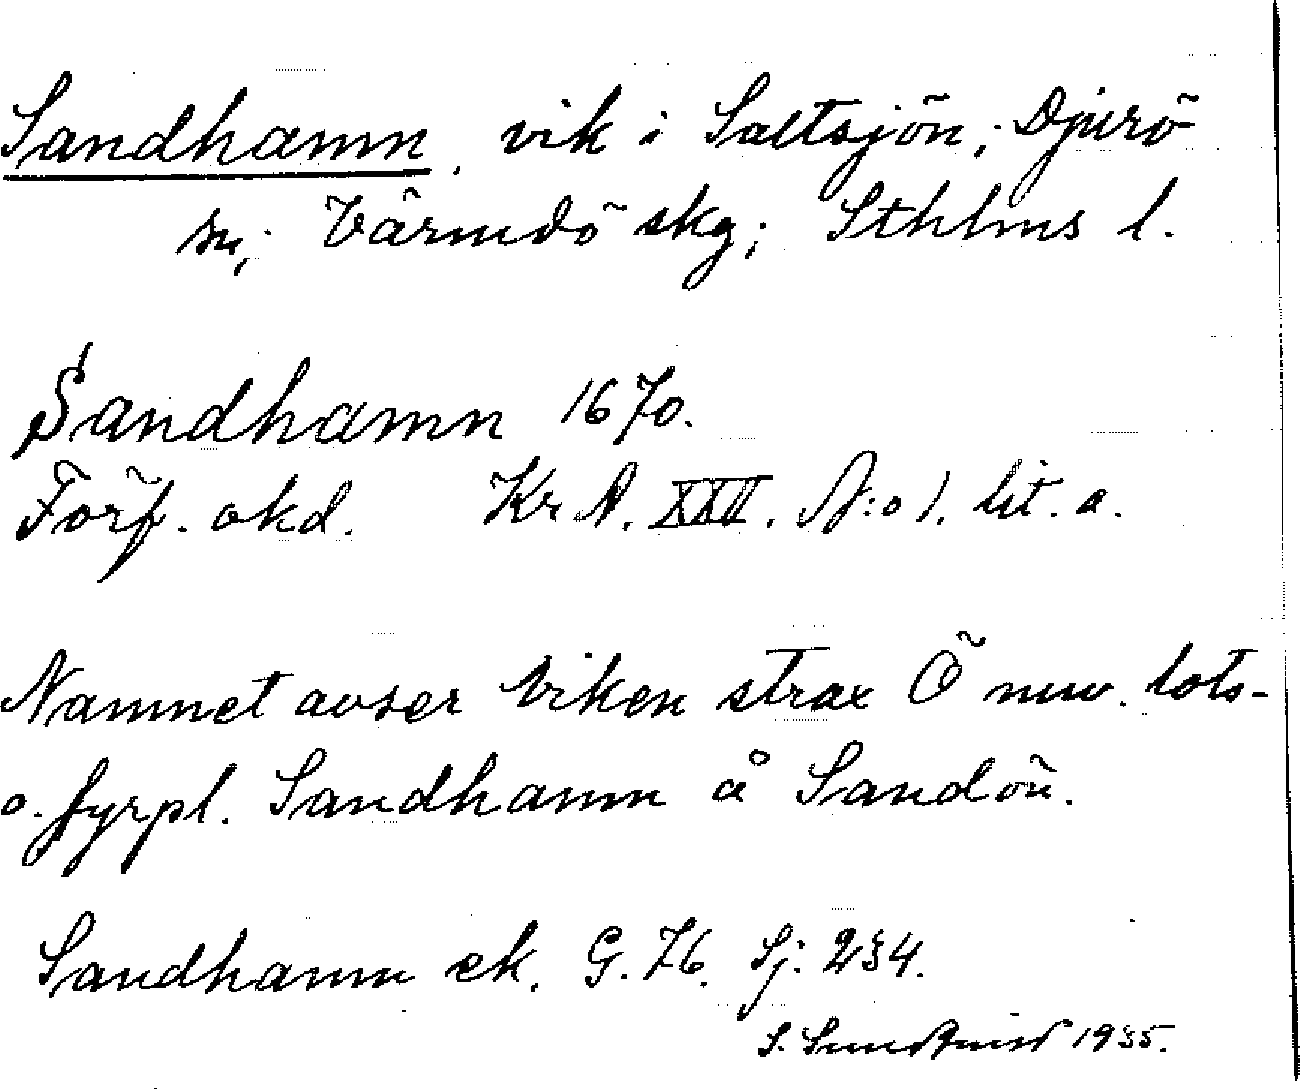 Sandhamn, vik i Saltsjön; Djurö
sn; Värmdö skg; Sthlms l.
Sandhamn 1670.
Förf. okd. Kr A. XXV. N:o 1. lit. a.
Namnet avser viken strax Ö nuv. lots-
o. fyrpl. Sandhamn å Sandön.
Sandhamn ek. G. 76. Sj. 234.
S. Sundquist 1935.